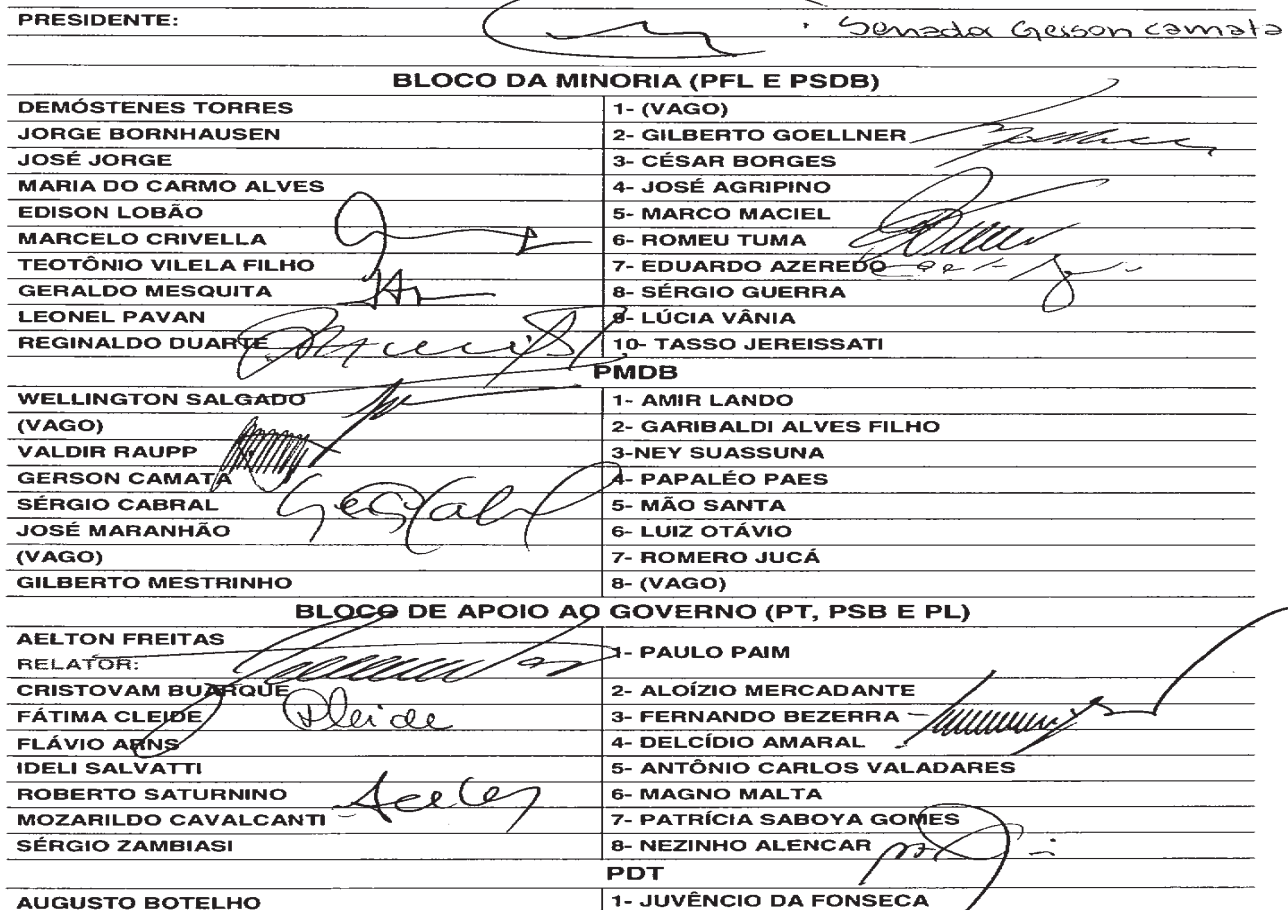 PRESIDENTE: Senador Gerson Camata
BLOCO DA MINORIA (PFL E PSDB)
DEMÓSTENES TORRES 1- (VAGO)
JORGE BORNHAUSEN 2- GILBERTO GOELLNER
JOSÉ JORGE 3- CÉSAR BORGES
MARIA DO CARMO ALVES 4- JOSÉ AGRIPINO
EDISON LOBÃO 5- MARCO MACIEL
MARCELO CRIVELLA 6- ROMEU TUMA
TEOTÔNIO VILELA FILHO 7- EDUARDO AZEREDO
GERALDO MESQUITA 8- SÉRGIO GUERRA
LEONEL PAVAN 9- LÚCIA VÂNIA
REGINALDO DUARTE 10- TASSO JEREISSATI
PMDB
WELLINGTON SALGADO 1- AMIR LANDO
(VAGO) 2- GARIBALDI ALVES FILHO
VALDIR RAUPP 3-NEY SUASSUNA
GERSON CAMATA 4- PAPALÉO PAES
SÉRGIO CABRAL 5- MÃO SANTA
JOSÉ MARANHÃO 6- LUIZ OTÁVIO
(VAGO) 7- ROMERO JUCÁ
GILBERTO MESTRINHO 8- (VAGO)
BLOCO DE APOIO AO GOVERNO (PT, PSB E PL)
AELTON FREITAS
RELATOR: 1- PAULO PAIM
CRISTOVAM BUARQUE 2- ALOÍZIO MERCADANTE
FÁTIMA CLEIDE Cleide 3- FERNANDO BEZERRA
FLÁVIO ARNS 4- DELCÍDIO AMARAL
IDELI SALVATTI 5- ANTÔNIO CARLOS VALADARES
ROBERTO SATURNINO 6- MAGNO MALTA
MOZARILDO CAVALCANTI 7- PATRÍCIA SABOYA GOMES
SÉRGIO ZAMBIASI 8- NEZINHO ALENCAR
PDT
AUGUSTO BOTELHO 1- JUVÊNCIO DA FONSECA